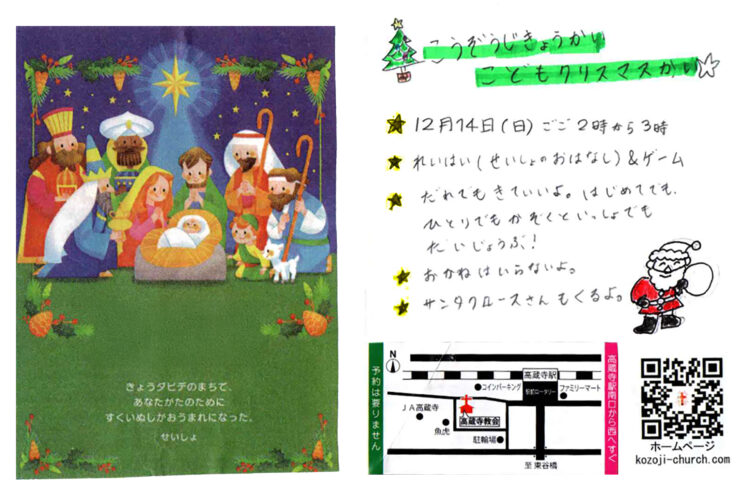 きょうダビデのまちで、
あなたがたのために
すくいぬしがおうまれになった。
せいしょ
こうぞうじきょうかい
こどもクリスマスかい
12月14日(日)ごご2時から3時
れいはい(せいしょのおはなし)&ゲーム
だれでもきていいよ。はじめてでも、
ひとりでもかぞくといっしょでも
だいじょうぶ!
おかねはいらないよ。
サンタクロースさんもくるよ。
予約は要りません
N
高蔵寺駅
コインパーキング
駅前ロータリー
ファミリーマート
JA高蔵寺
魚虎
高蔵寺教会
駐輪場
至東谷橋
高蔵寺駅南口から西へすぐ
ホームページ
kozoji-church.com